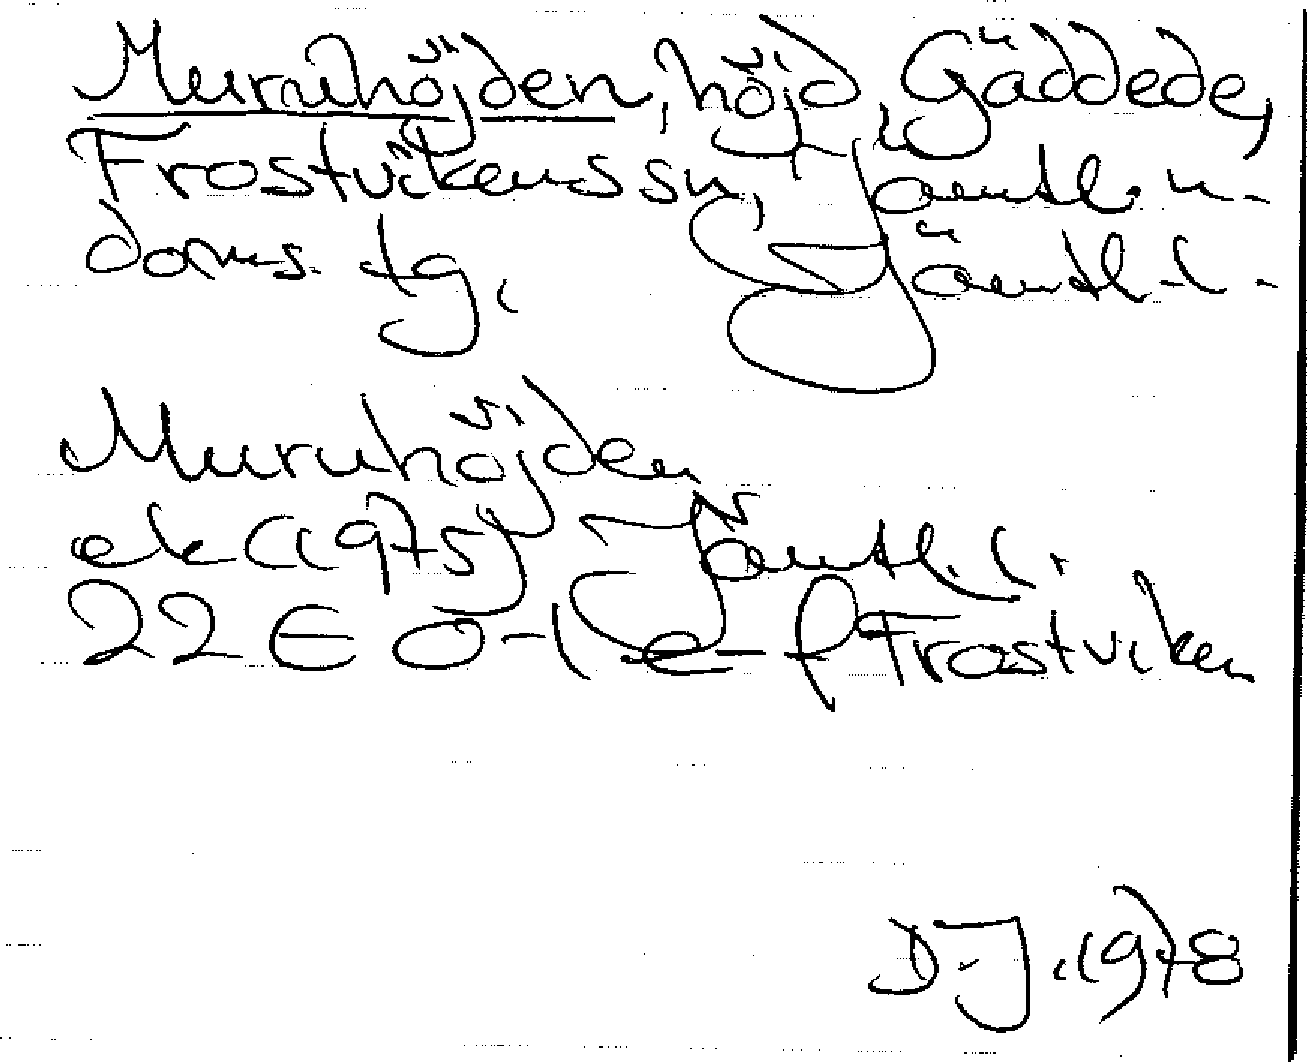 Muruhöjden, höjd, Gäddede,
Frostvikens sn, Jämtl. n.
doms. tg, Jämtl. l.
Muruhöjden
ek (1975) Jämtl. l.
22E 0-1 e-f Frostviken
D.J. 1978